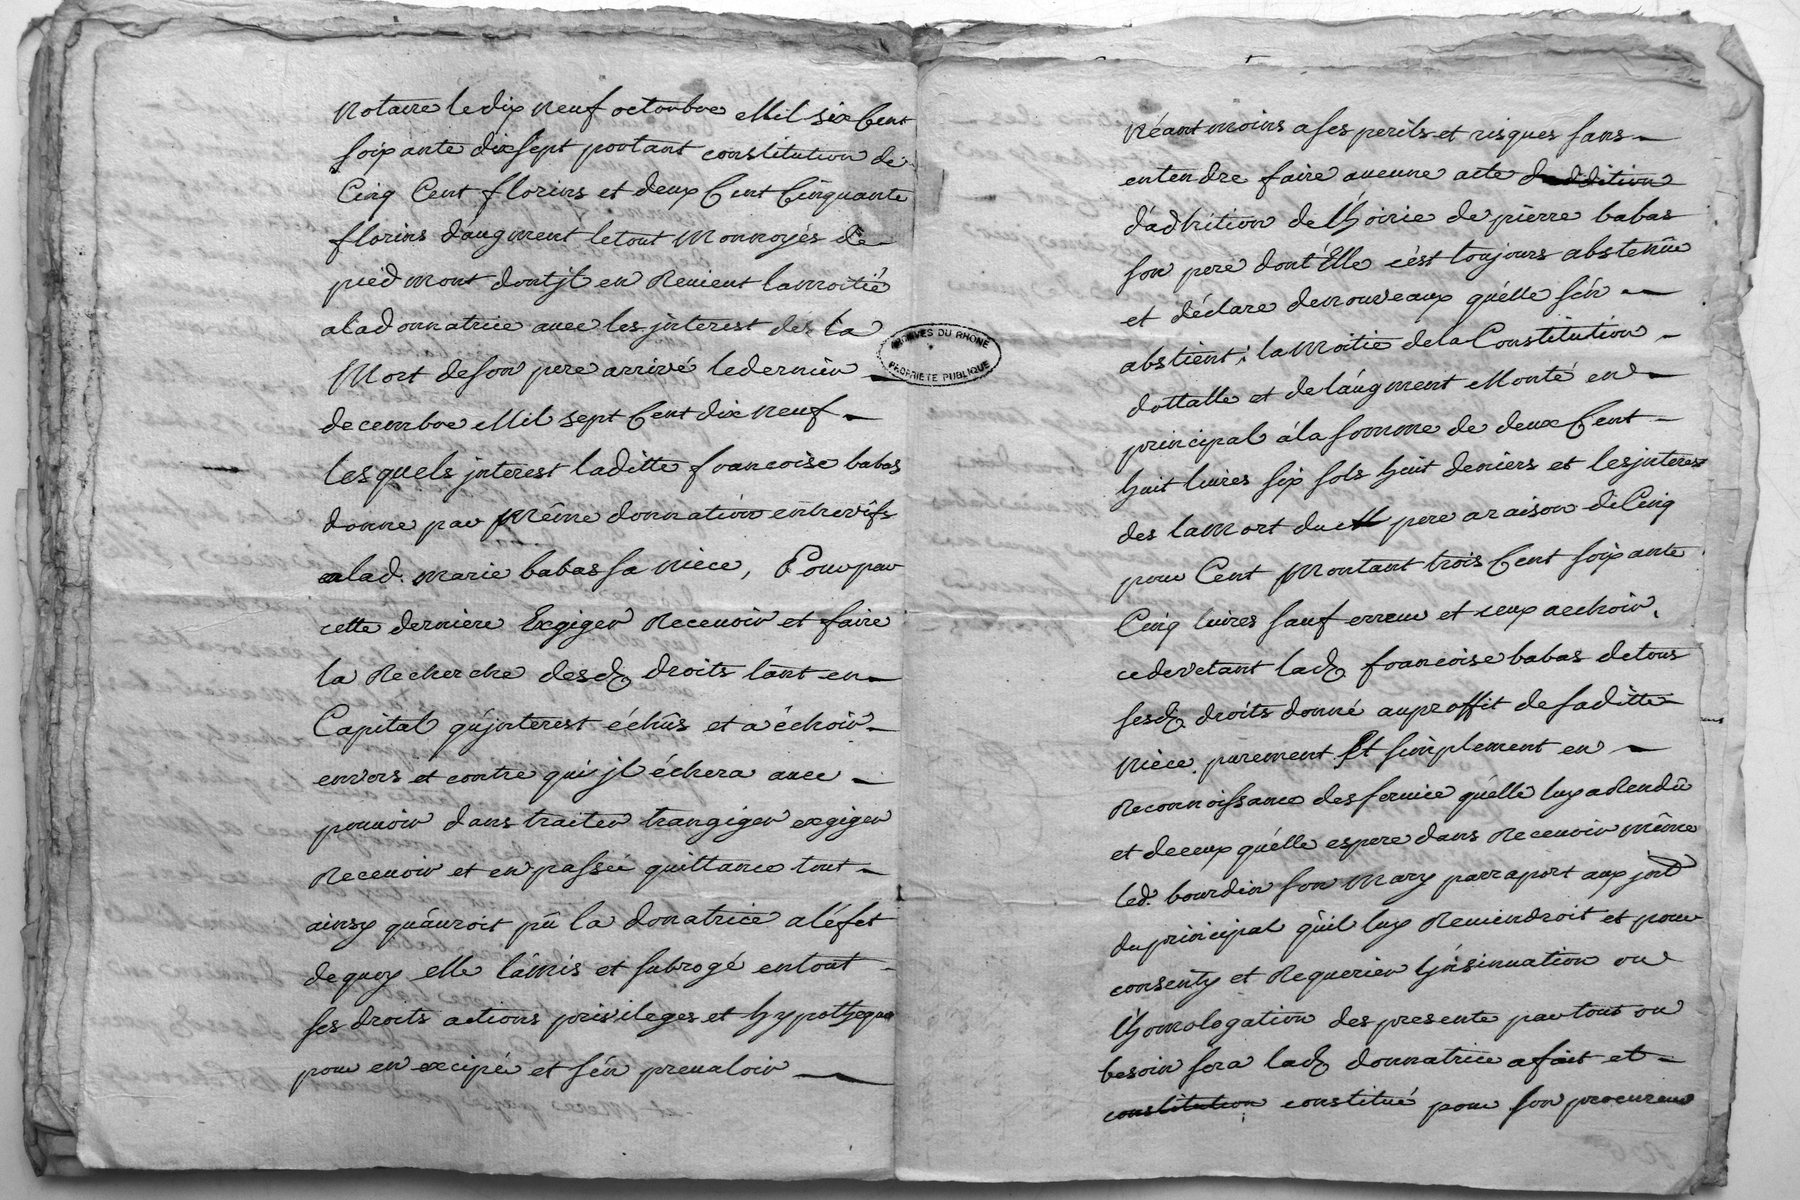 Notaire le dix neuf octoubre Mil six Cent
soixante dix sept pourtant constitution de
Cinq Cent florins et deux Cent Cinquante
florins d'augment le tout Monnoyés de
pied mont dont jl en Revient la moitié
a la donnatrice avec les jnterest des la
Mort de son pere arrivé le dernier
decembre Mil sept Cent dix neuf
les quels jnterest laditte francoise babas
donne par même donnation entrevifs
a lad. marie babas sa niece, Pour par
cette derniere Exgiger Recevoir et faire
la Recherche desd. droits tant en
Capital qu'jnterest échûs et a échoir
envers et contre qui jl échera avec
pouvoir dans traiter trangiger exgiger
Recevoir et en passée quittance tout
ainsy qu'auroit pû la donatrice a l'éfet
de quoy elle l'amis et subrogé en tout
ses droits actions privileges et hypotheque
pour en excipér et s'én prevaloir
Néantmoins a ses perils et risques sans
entendre faire aucune acte d'addition
d'adhition de l'hoirie de pierre babas
son pere dont Elle c'ést toujours abstenûe
et déclare de nouveaux qu'élle s'én
abstient ; la Moitie de la Constitution
dottalle et de l'augment Monté en
principal à la somme de deux Cent
huit livres six sols huit deniers et les jnterest
des la Mort du pere a raison de Cinq
pour Cent Montant trois Cent soixante
Cinq livres sauf erreur et ceux a echoir,
ce devetant lad. francoise babas de tous
sesd. droits donné au proffit de saditte
niéce purement Et simplement en
Reconnoissance des service qu'élle luy a Rendû
et de ceux qu'élle espere dans Recevoir même
led. bourdin son mary par raport aux jnt.
du principal qu'il luy Reviendroit et pour
consentÿ et Requerier l'jnsinuation ou
l'homologation des presente par tout ou
besoin sera lad. donnatrice a fait et
constitution constitué pour son procureur
ARCHIVES DU RHONE
PROPRIETE PUBLIQUE